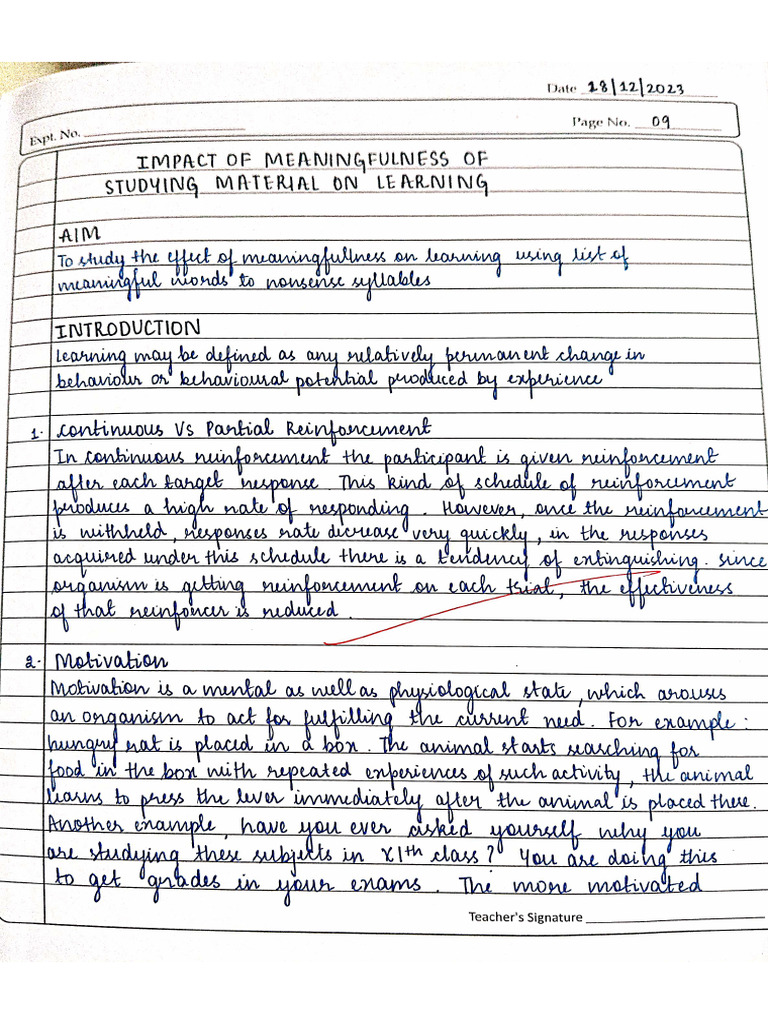 Date 18/12/2023
Expt. No.
Page No. 09
IMPACT OF MEANINGFULNESS OF
STUDYING MATERIAL ON LEARNING
AIM
To study the effect of meaningfullness on learning using list of
meaningful words to nonsense syllables
INTRODUCTION
Learning may be defined as any relatively permanent change in
behaviour or behavioural potential produced by experience
1. Continuous Vs Partial Reinforcement
In continuous reinforcement the participant is given reinforcement
after each target response. This kind of schedule of reinforcement
produces a high rate of responding. However, once the reinforcement
is withheld, responses rate decrease very quickly, in the responses
acquired under this schedule there is a tendency of extinguishing. since
organism is getting reinforcement on each trial, the effectiveness
of that reinforcer is reduced.
2. Motivation
Motivation is a mental as well as physiological state, which arouses
an organism to act for fulfilling the current need. For example :
hungry rat is placed in a box. The animal starts searching for
food in the box with repeated experiences of such activity, the animal
learns to press the lever immediately after the animal is placed there.
Another example, have you ever asked yourself why you
are studying these subjects in XIth class? You are doing this
to get grades in your exams. The more motivated
Teacher's Signature